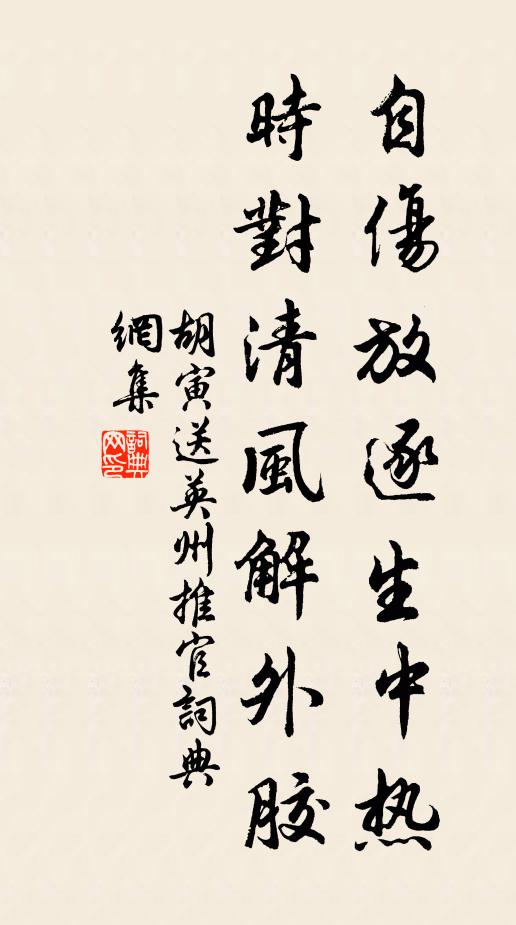 自傷放逐生中热
時對清風解外胶
胡寅送英州推官詞典
網集
詞典网印